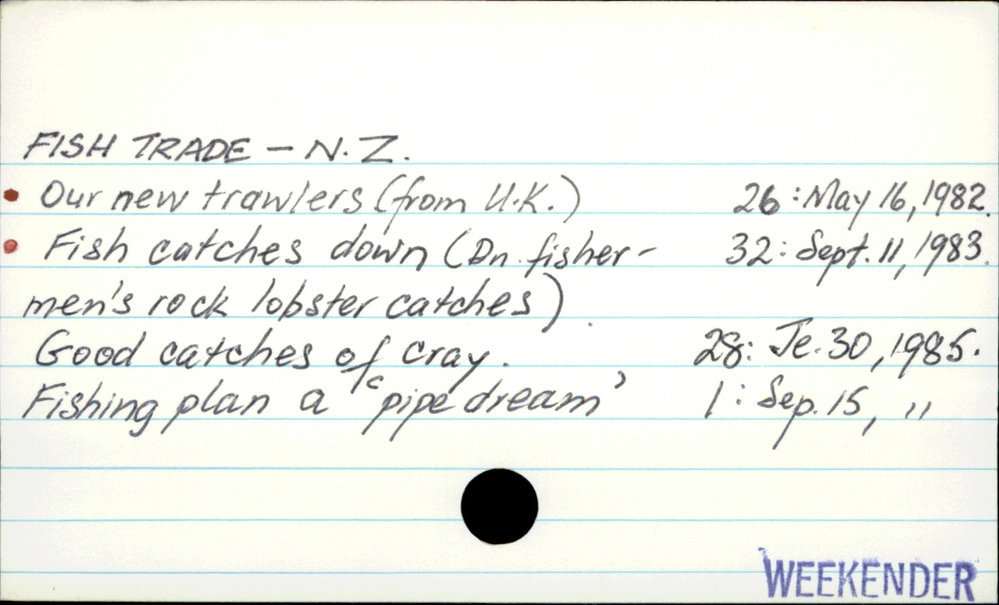 FISH TRADE – N.Z.
• Our new trawlers (from U.K.) 26: May 16, 1982.
• Fish catches down (Dn. fisher- 32: Sept. 11, 1983.
men's rock lobster catches).
Good catches of cray. 28: Je. 30, 1985.
Fishing plan a 'pipe dream' 1: Sep. 15, "
WEEKENDER